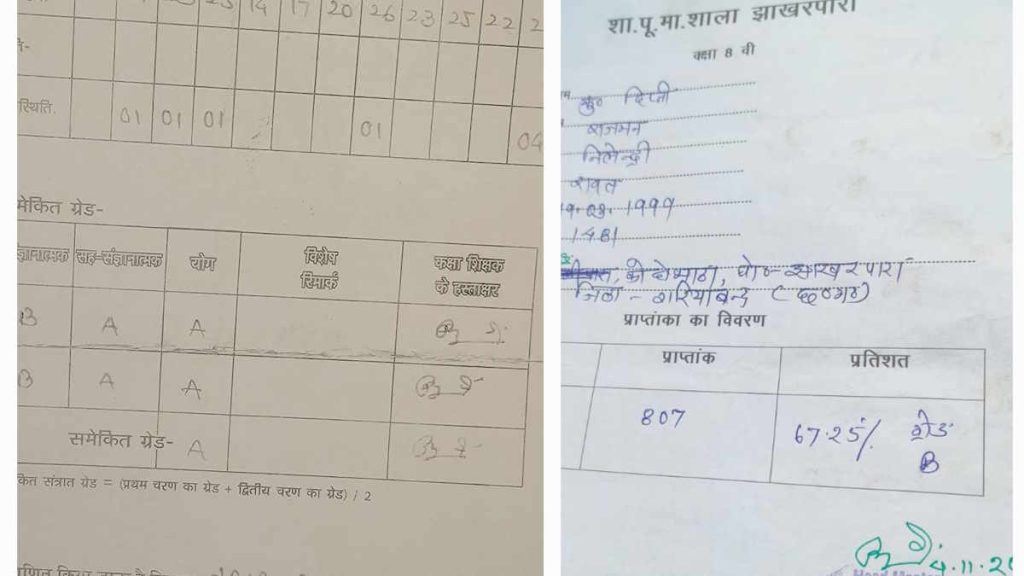 14 17 20 26 23 25 22
स्थिति. 01 01 01 01 04
मेकित ग्रेड-
ज्ञानात्मक सह-संज्ञानात्मक योग विशेष रिमार्क कक्षा शिक्षक के हस्ताक्षर
B A A
B A A
समेकित ग्रेड- A
कित संत्रात ग्रेड = (प्रथम चरण का ग्रेड + द्वितीय चरण का ग्रेड) / 2
शा.पू.मा.शाला झाखरपारा
कक्षा 8 वी
कु० दिप्ती
राजमन
निलेन्द्री
रावत
19.03.1999
1481
पो०- झाखरपारा
जिला - गरियाबन्द (छ०ग०)
प्राप्तांका का विवरण
प्राप्तांक प्रतिशत
807 67.25% ग्रेड B